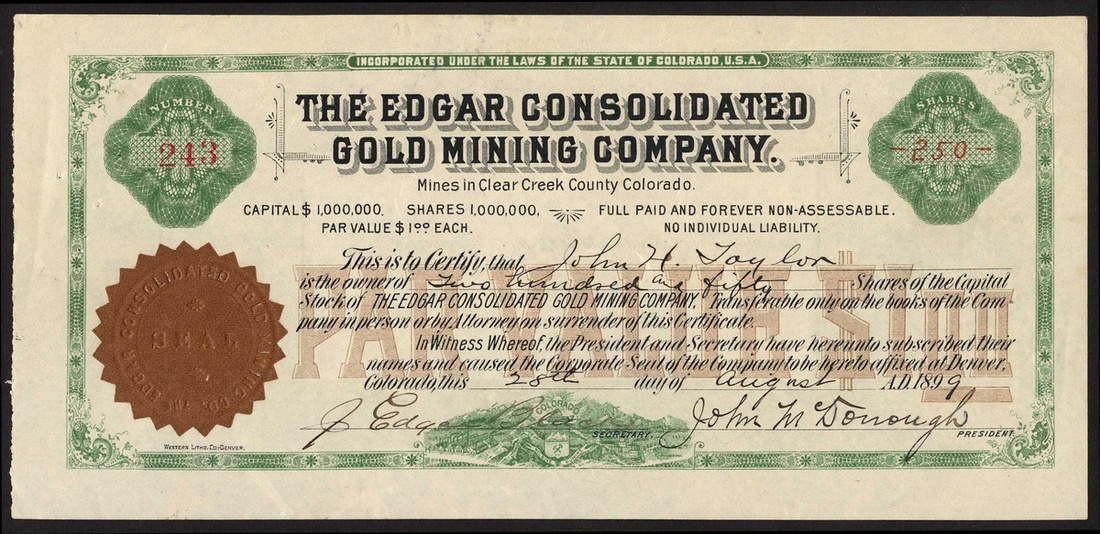 INCORPORATED UNDER THE LAWS OF THE STATE OF COLORADO, U.S.A.
NUMBER
243
SHARES
-250-
THE EDGAR CONSOLIDATED
GOLD MINING COMPANY.
Mines in Clear Creek County Colorado.
CAPITAL $ 1,000,000. SHARES 1,000,000, FULL PAID AND FOREVER NON-ASSESSABLE.
PAR VALUE $1.00 EACH. NO INDIVIDUAL LIABILITY.
This is to Certify, that John H. Taylor
is the owner of Two hundred and fifty Shares of the Capital
Stock of THE EDGAR CONSOLIDATED GOLD MINING COMPANY. Transferable only on the books of the Com-
pany in person or by Attorney on surrender of this Certificate.
In Witness Whereof, the President and Secretary have hereunto subscribed their
names and caused the Corporate Seal of the Company to be hereto affixed at Denver,
Colorado, this 28th day of August A.D. 1899
PAR VALUE $1.00
EDGAR CONSOLIDATED GOLD MINING CO.
SEAL
J Edgar
COLORADO
SECRETARY.
John McDonough
PRESIDENT
WESTERN LITHO. CO. DENVER.